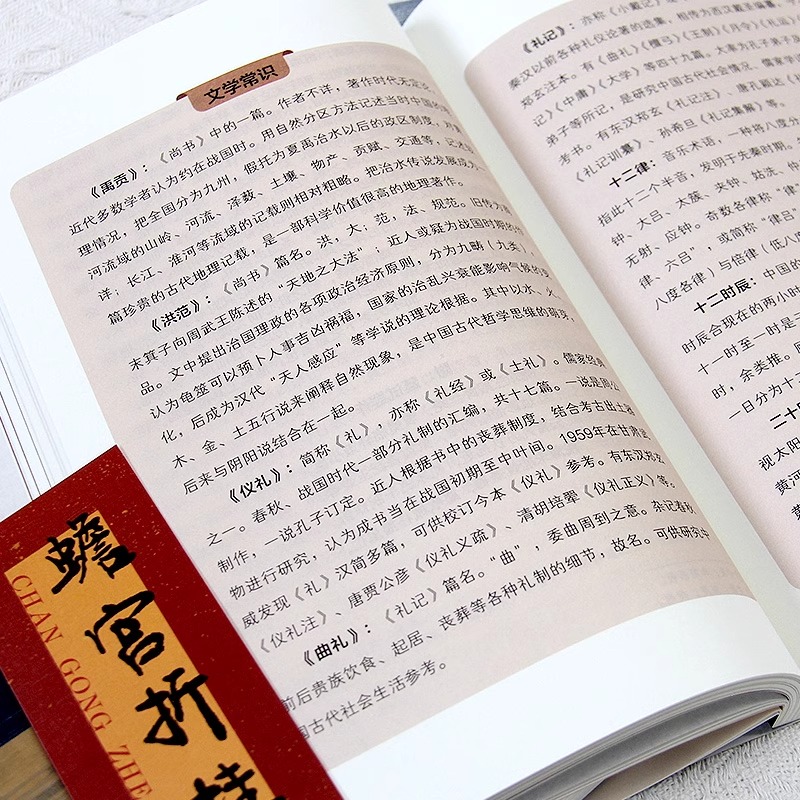 文学常识
《禹贡》：《尚书》中的一篇。作者不详，著作时代无定论，
近代多数学者认为约在战国时。用自然分区方法记述当时中国的
理情况，把全国分为九州，假托为夏禹治水以后的政区制度，
河流域的山岭、河流、泽薮、土壤、物产、贡赋、交通等，记述
详；长江、淮河等流域的记载则相对粗略。把治水传说发展成
篇珍贵的古代地理记载，是一部科学价值很高的地理著作。
《洪范》：《尚书》篇名。洪，大；范，法、规范。旧传为
末箕子向周武王陈述的“天地之大法”；近人或疑为战国时期的
品。文中提出治国理政的各项政治经济原则，分为九畴（九类）
认为龟筮可以预卜人事吉凶祸福，国家的治乱兴衰能影响气候的
化，后成为汉代“天人感应”等学说的理论根据。其中以水、火、
木、金、土五行说来阐释自然现象，是中国古代哲学思维的萌芽，
后来与阴阳说结合在一起。
《仪礼》：简称《礼》，亦称《礼经》或《士礼》。儒家经典
之一。春秋、战国时代一部分礼制的汇编，共十七篇。一说是周公
制作，一说孔子订定。近人根据书中的丧葬制度，结合考古出土器
物进行研究，认为成书当在战国初期至中叶间。1959年在甘肃武
威发现《礼》汉简多篇，可供校订今本《仪礼》参考。有东汉郑玄
《仪礼注》、唐贾公彦《仪礼义疏》、清胡培翚《仪礼正义》等。
《曲礼》：《礼记》篇名。“曲”，委曲周到之意。杂记春秋
前后贵族饮食、起居、丧葬等各种礼制的细节，故名。可供研究中
国古代社会生活参考。
《礼记》：亦称《小戴记》
秦汉以前各种礼仪论著的选集，相传为西汉戴圣编
有《曲礼》《檀弓》《王制》《月令》《礼运》
记》《中庸》《大学》等四十九篇，大率为孔子弟子及
弟子等所记，是研究中国古代社会情况、儒家学
考书。有东汉郑玄《礼记注》、唐孔颖达《礼
《礼记训纂》、孙希旦《礼记集解》等。
十二律：音乐术语，一种将八度分
指此十二个半音，发明于先秦时期。
钟、大吕、太簇、夹钟、姑洗、仲
无射、应钟。奇数各律称“律
律、六吕”，或简称“律吕”
八度各律）与倍律（低八度
十二时辰：中国的
时辰合现在的两小时
十一时至一时是子
时，余类推。
一日分为十
二十
视太阳
黄河
蟾宫折桂
CHAN GONG ZHE